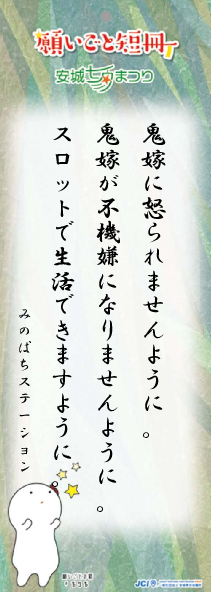 願いごと短冊
安城七夕まつり
鬼嫁に怒られませんように。
鬼嫁が不機嫌になりませんように。
スロットで生活できますように。
みのばちステーション
JCI